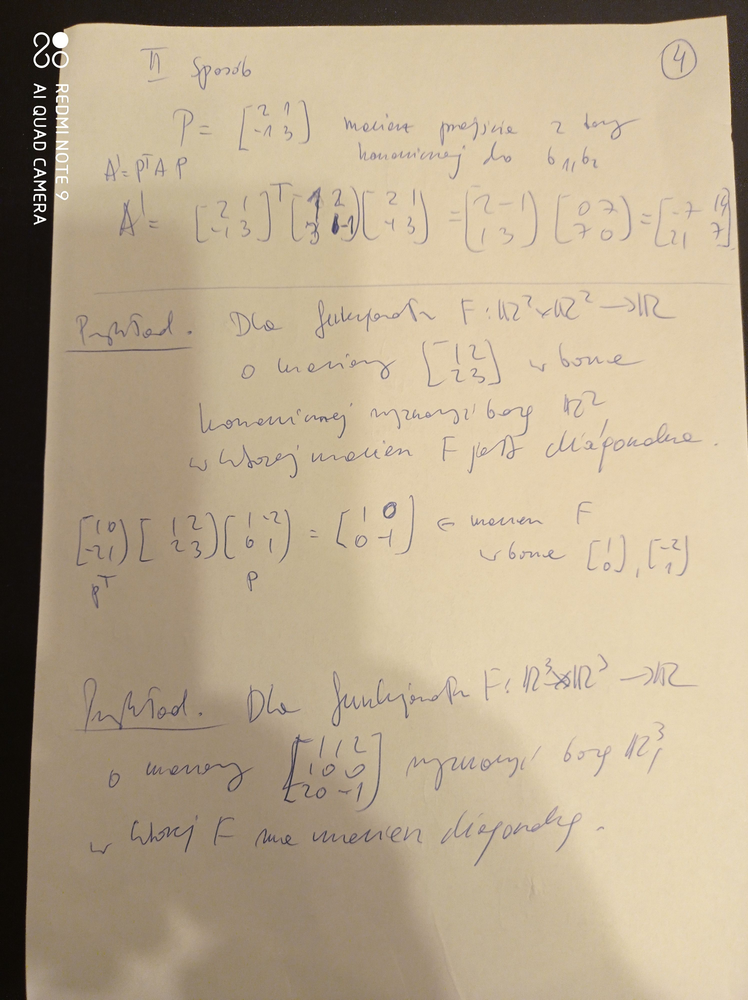 II Sposób
4
P = [2 1 -1 3] macierz przejścia z bazy
A' = P^T A P kanonicznej do b1, b2
A' = [2 1 -1 3]^T [1 2 3 -1] [2 1 -1 3] = [2 -1 1 3] [0 7 7 0] = [-7 14 21 7]
Przykład. Dla funkcjonału F: ℝ² × ℝ² → ℝ
o macierzy [1 2 2 3] w bazie
kanonicznej wyznaczyć bazę ℝ²
w której macierz F jest diagonalna.
[1 0 -2 1] [1 2 2 3] [1 -2 0 1] = [1 0 0 -1] ← macierz F
P^T P w bazie [1 0], [-2 1]
Przykład. Dla funkcjonału F: ℝ³ × ℝ³ → ℝ
o macierzy [1 1 2 1 0 0 2 0 -1] wyznaczyć bazę ℝ³,
w której F ma macierz diagonalną.
REDMI NOTE 9
AI QUAD CAMERA